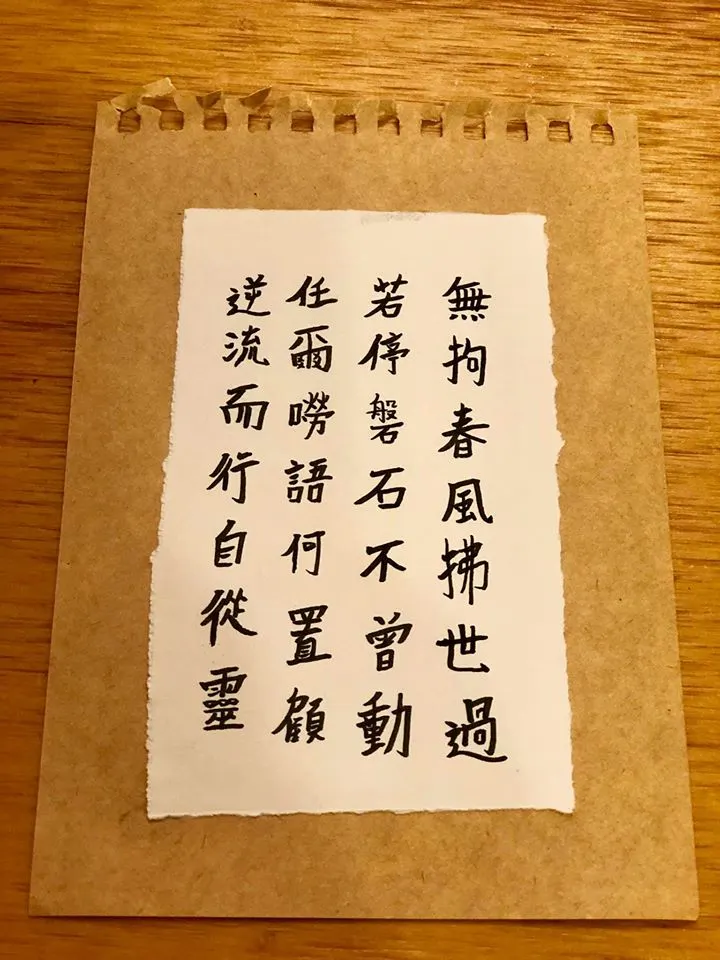 無拘春風拂世過
若停磐石不曾動
任爾嘮語何置顧
逆流而行自從靈